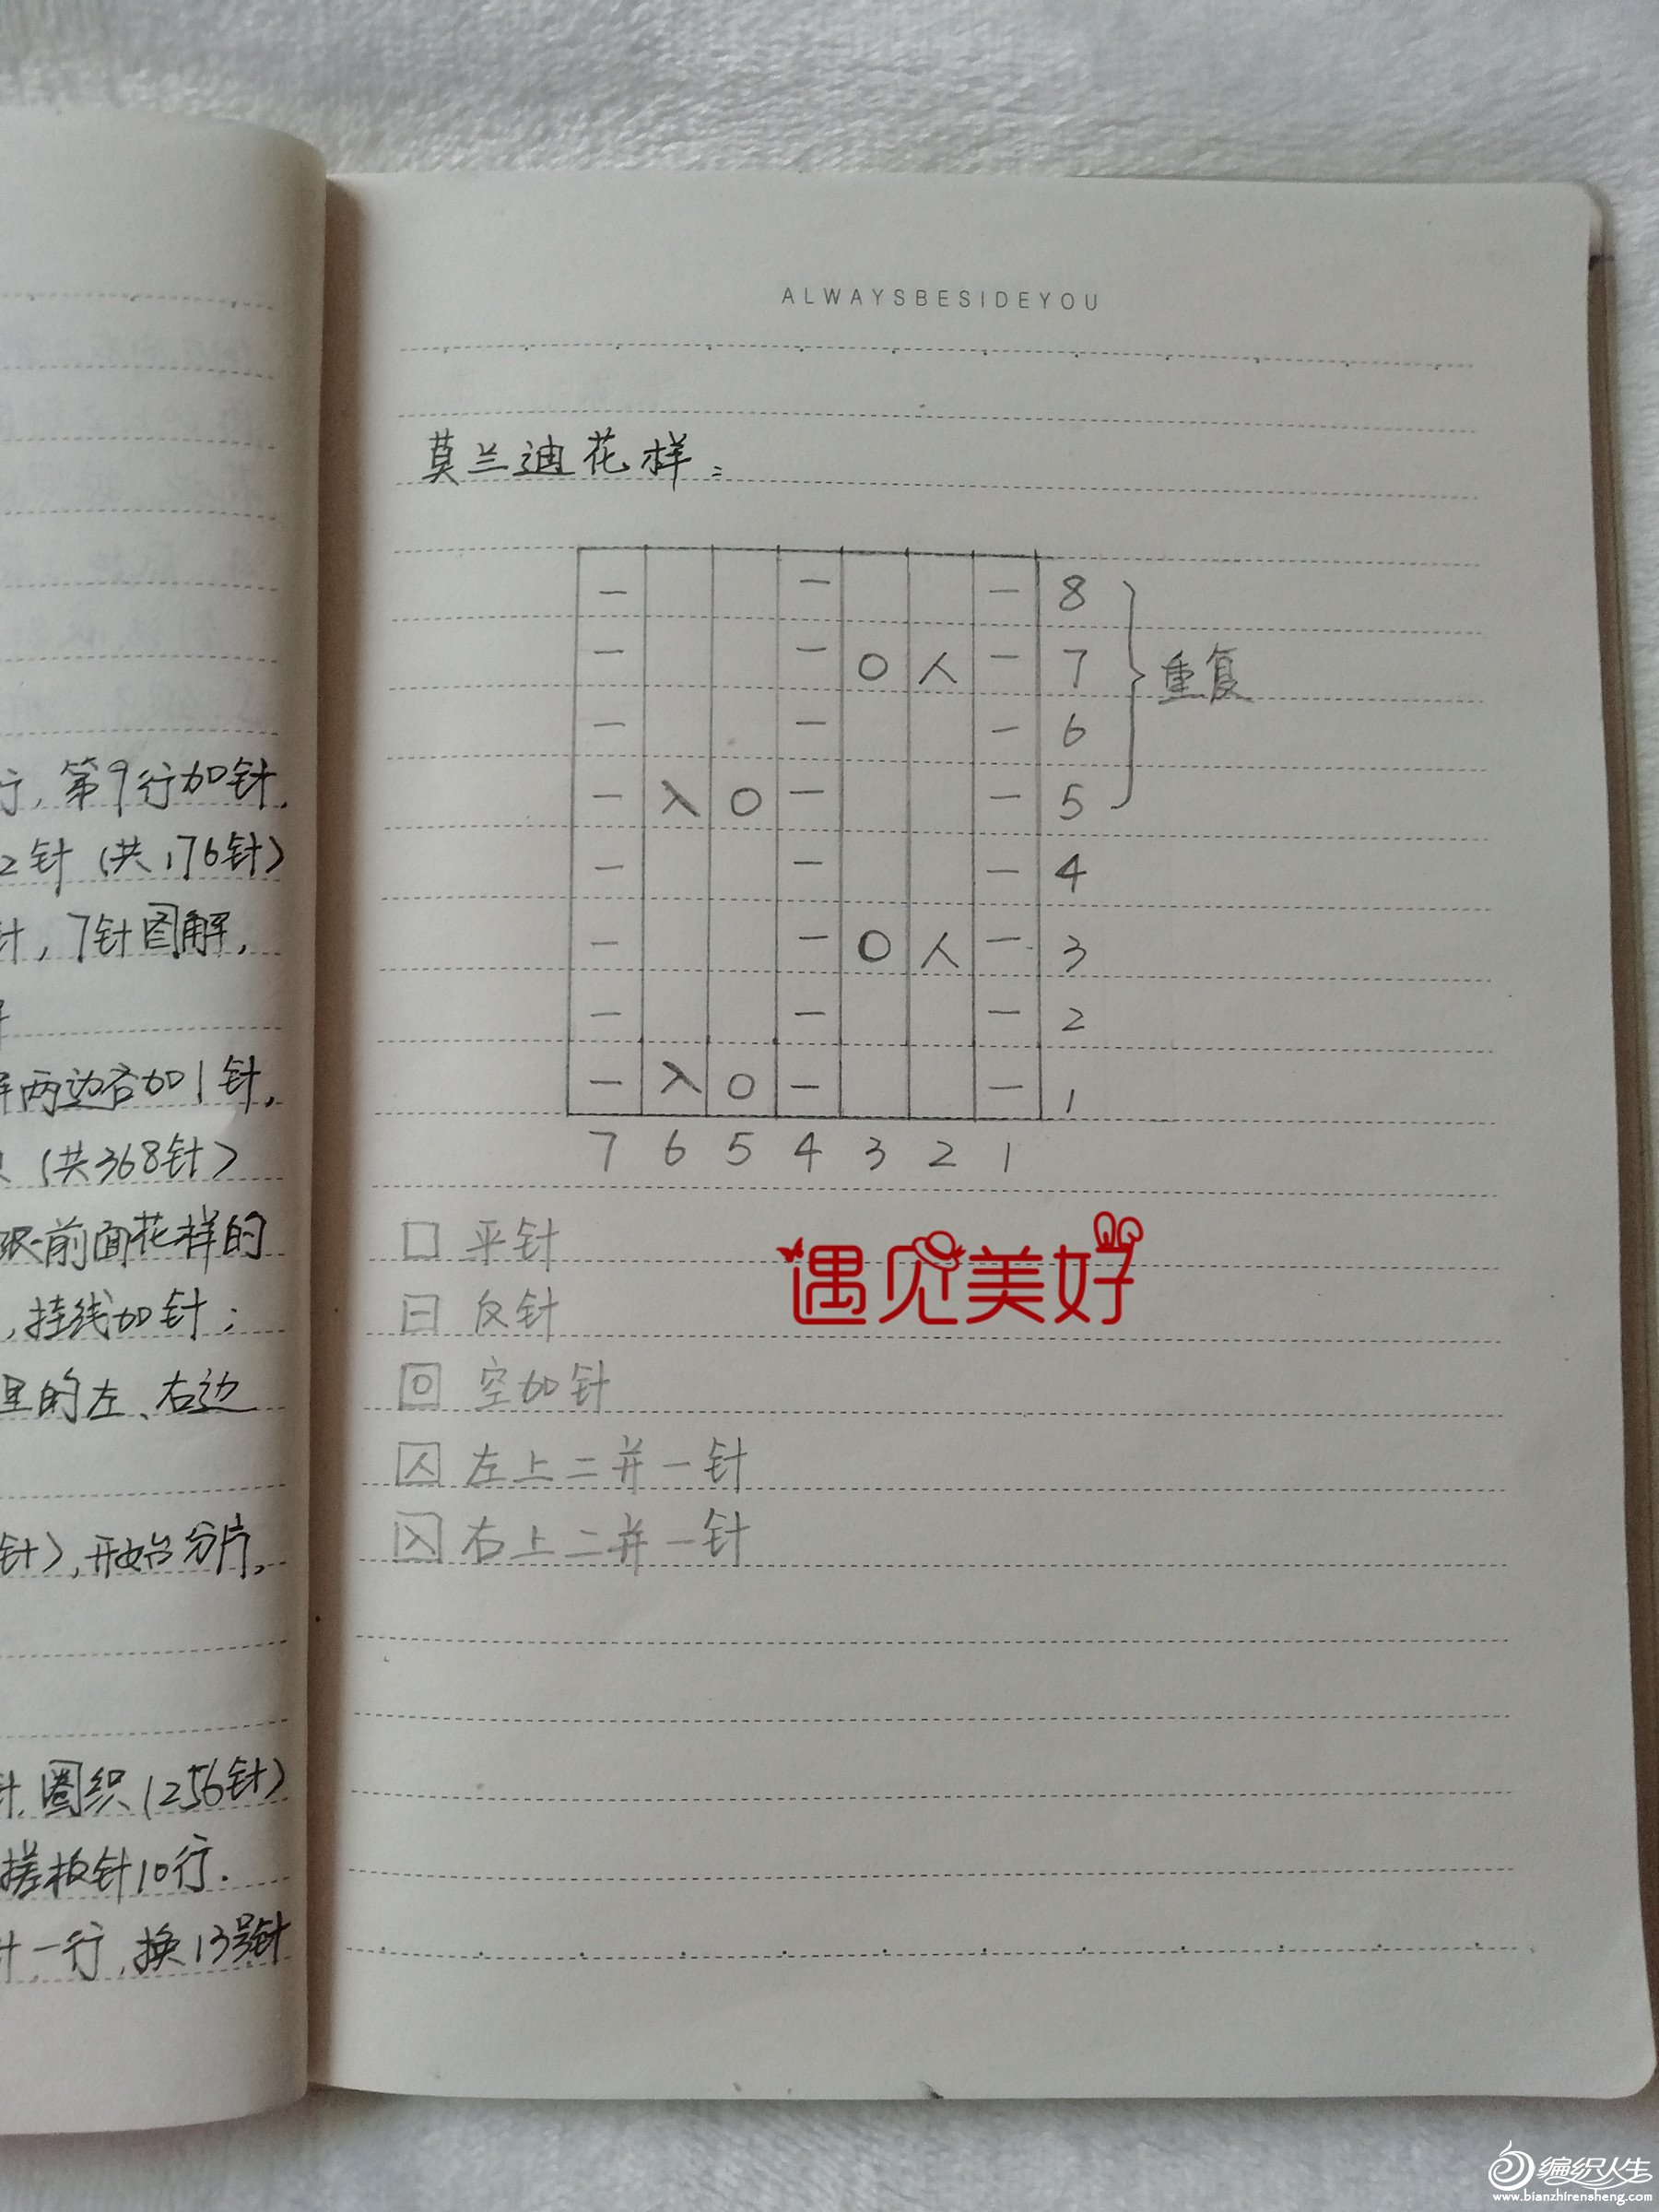 行,第9行加针,
2针(共176针)
针,7针图解,
两边各加1针,
(共368针)
跟前面花样的
,挂线加针;
里的左、右边
针),开始分片,
针,圈织(256针)
搓板针10行.
针一行,换13号针
ALWAYSBESIDEYOU
莫兰迪花样:
— — — 8
— — O 人 — 7 重复
— — — 6
— 入 O — — 5
— — — 4
— — O 人 — 3
— — — 2
— 入 O — — 1
7 6 5 4 3 2 1
口 平针
曰 反针
回 空加针
囚 左上二并一针
入 右上二并一针
遇见美好
编织人生
www.bianzhirensheng.com